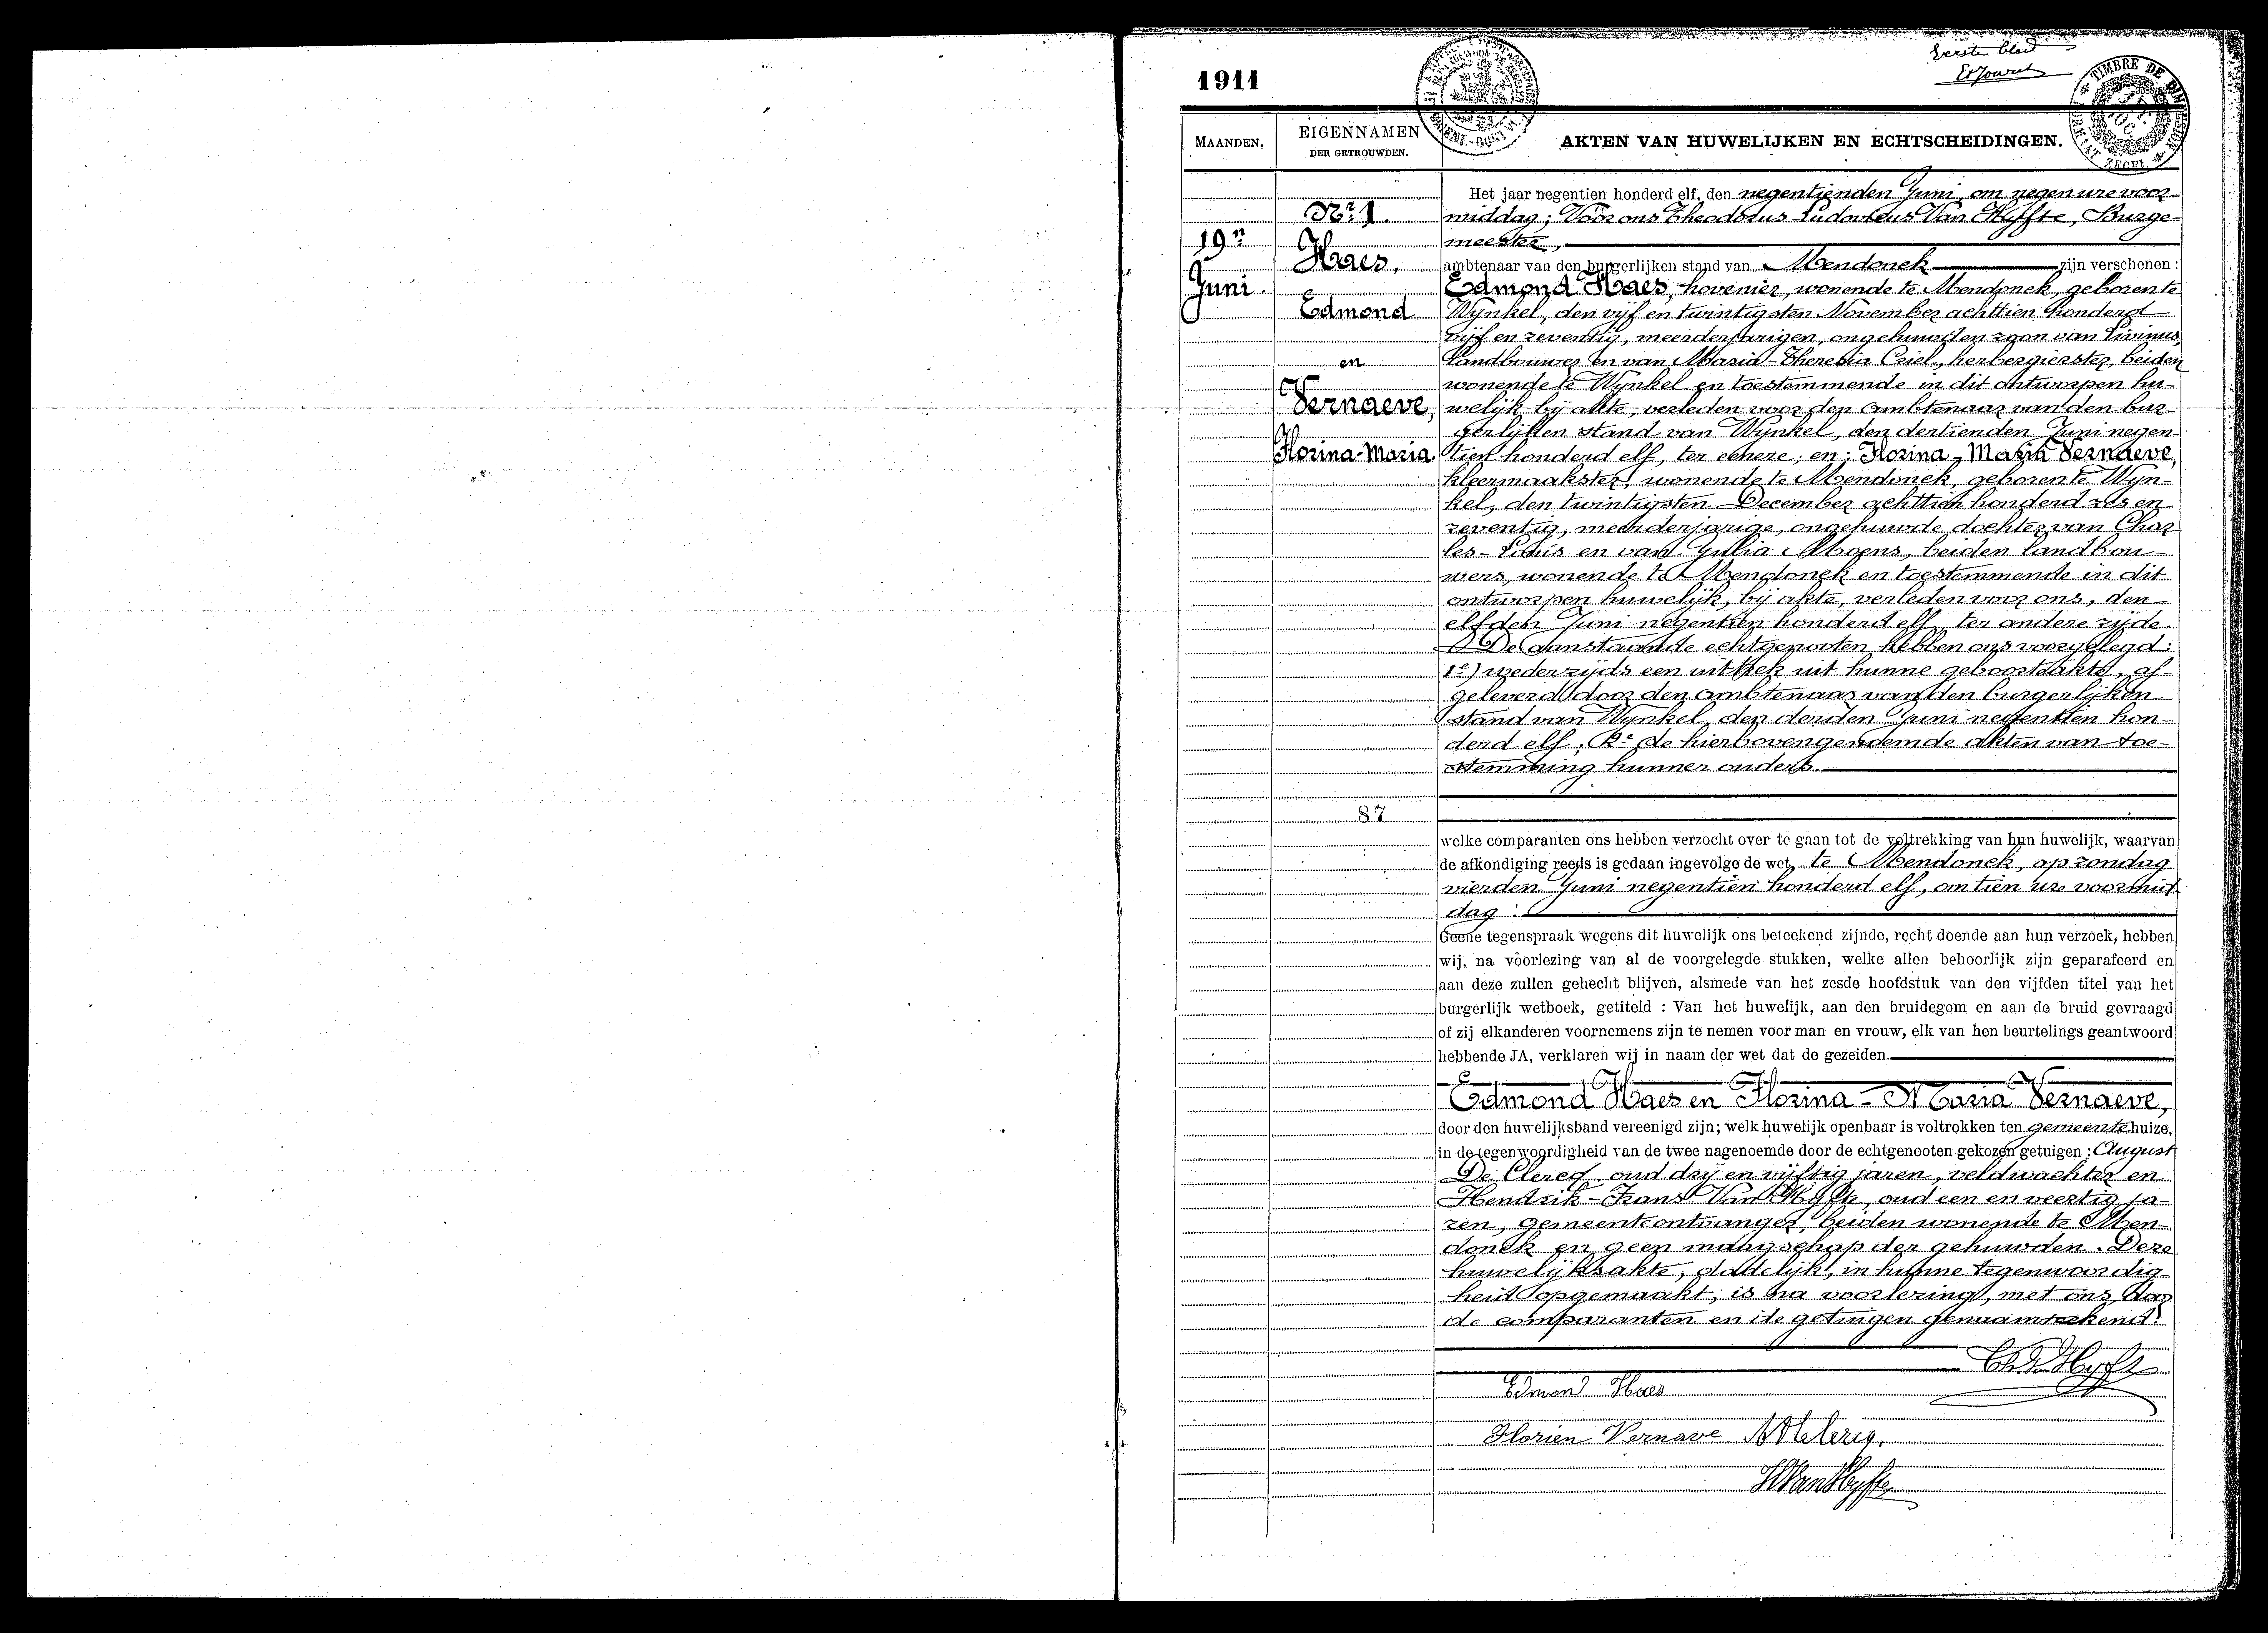 Eerste blad
1911
TIMBRE DE DIMENSION
ZEGEL
MAANDEN.
EIGENNAMEN
DER GETROUWDEN.
AKTEN VAN HUWELIJKEN EN ECHTSCHEIDINGEN.
Nr. 1.
19n
Juni.
Haes,
Edmond
en
Vernaeve,
Florina-Maria
87
Het jaar negentien honderd elf, den negentienden Juni, om negen ure voor-
middag; Vóór ons Theodorus-Ludovicus Van Hyfte, Burge-
meester,
ambtenaar van den burgerlijken stand van Mendonck zijn verschenen:
Edmond Haes, hovenier, wonende te Mendonck, geboren te
Wynkel, den vijf en twintigsten November achttien honderd
vijf en zeventig, meerderjarigen, ongehuwden zoon van Livinus,
landbouwer en van Maria-Theresia Criel, herbergierster, beiden
wonende te Wynkel en toestemmende in dit ontworpen hu-
welijk bij akte, verleden voor den ambtenaar van den bur-
gerlijken stand van Wynkel, den dertienden Juni negen-
tien honderd elf, ter eenere; en: Florina-Maria Vernaeve,
kleermaakster, wonende te Mendonck, geboren te Wyn-
kel, den twintigsten December achttien honderd zes en
zeventig, meerderjarige, ongehuwde dochter van Char-
les-Louis en van Julia Moens, beiden landbou-
wers, wonende te Mendonck en toestemmende in dit
ontworpen huwelijk, bij akte, verleden voor ons, den
elfden Juni negentien honderd elf, ter andere zijde.
De aanstaande echtgenooten hebben ons voorgelegd:
1º) wederzijds een uittrek uit hunne geboorteakte, af-
geleverd door den ambtenaar van den burgerlijken
stand van Wynkel, den derden Juni negentien hon-
derd elf; 2º de hierbovengenoemde akten van toe-
stemming hunner ouders.
welke comparanten ons hebben verzocht over te gaan tot de voltrekking van hun huwelijk, waarvan
de afkondiging reeds is gedaan ingevolge de wet, te Mendonck, op zondag
vierden Juni negentien honderd elf, om tien ure voormid-
dag.
Geene tegenspraak wegens dit huwelijk ons beteekend zijnde, recht doende aan hun verzoek, hebben
wij, na vóorlezing van al de voorgelegde stukken, welke allen behoorlijk zijn geparafeerd en
aan deze zullen gehecht blijven, alsmede van het zesde hoofdstuk van den vijfden titel van het
burgerlijk wetboek, getiteld : Van het huwelijk, aan den bruidegom en aan de bruid gevraagd
of zij elkanderen voornemens zijn te nemen voor man en vrouw, elk van hen beurtelings geantwoord
hebbende JA, verklaren wij in naam der wet dat de gezeiden
Edmond Haes en Florina-Maria Vernaeve,
door den huwelijksband vereenigd zijn; welk huwelijk openbaar is voltrokken ten gemeentehuize,
in de tegenwoordigheid van de twee nagenoemde door de echtgenooten gekozen getuigen : August
De Clercq, oud drij en vijftig jaren, veldwachter en
Hendrik-Frans Van Hyfte, oud een en veertig ja-
ren, gemeentontvanger, beiden wonende te Men-
donck en geen maagschap der gehuwden. Deze
huwelijksakte, dadelijk, in hunne tegenwoordig-
heid opgemaakt, is na voorlezing, met ons, door
de comparanten en de getuigen genaamteekend.
Edmond Haes
Florien Vernave
H Van Hyfte